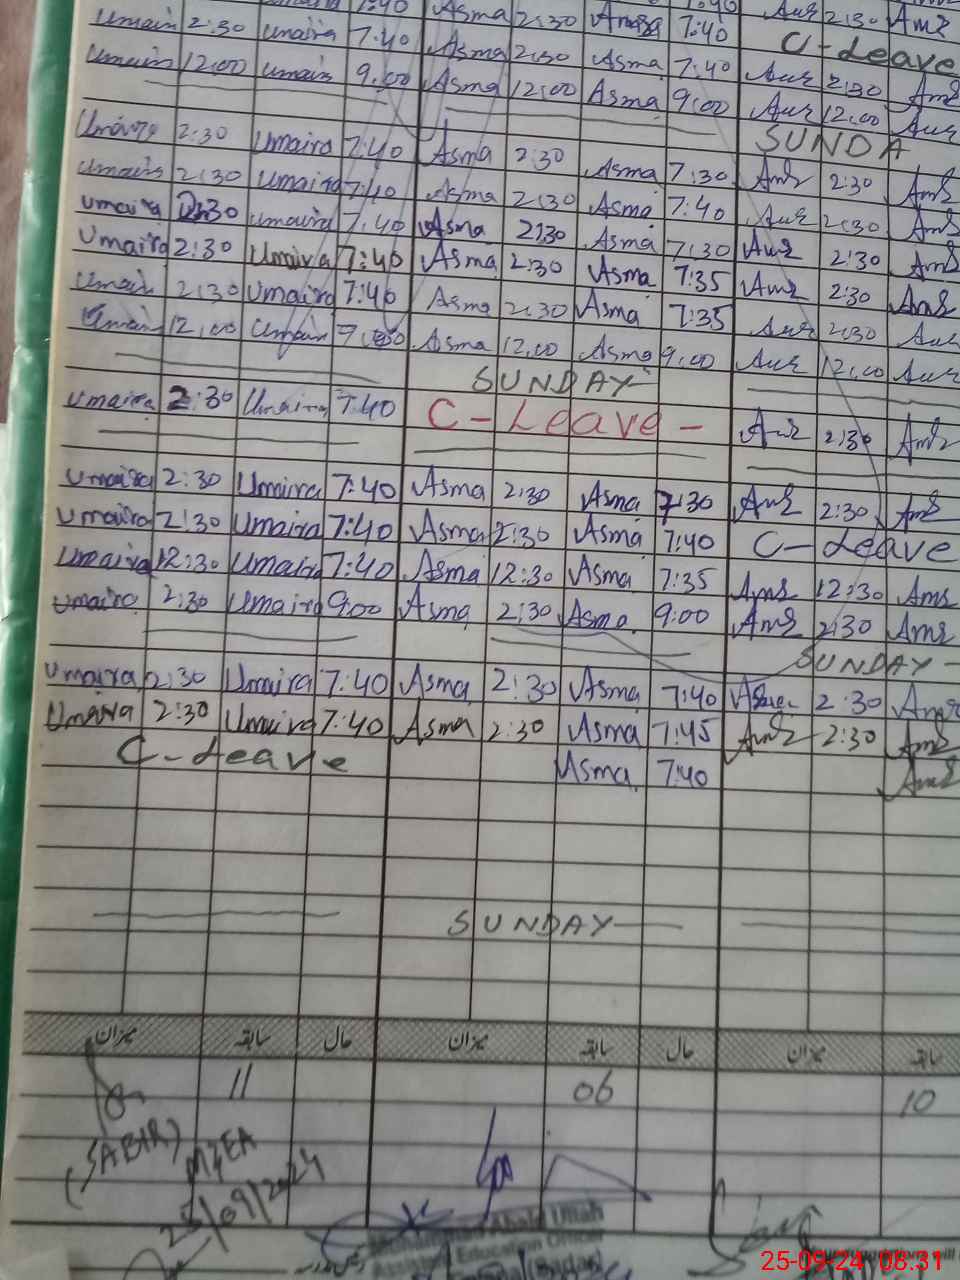 7:40 Asma 2:30 Asma 7:40 Ams 2:30 Ams
Umair 2:30 Umaira 7:40 C-Leave
Asma 2:30 Asma 7:40 2:30 Ams
Umair 12:00 Umair 9:00 Asma 12:00 Asma 9:00 12:00
SUNDA
Umaira 2:30 Umaira 7:40 Asma 2:30 Asma 7:30 Ams 2:30 Ams
Umaira 2:30 Umaira 7:40 Asma 2:30 Asma 7:40 2:30 Ams
Umaira 2:30 Umaira 7:40 Asma 2:30 Asma 7:30 2:30 Ams
Umaira 2:30 Umaira 7:40 Asma 2:30 Asma 7:35 Ams 2:30 Ams
Umair 2:30 Umaira 7:40 Asma 2:30 Asma 7:35 2:30
Umair 12:00 Umair Asma 12:00 Asma 9:00 12:00
SUNDAY
Umaira 2:30 Umaira 7:40 C-Leave - Ams 2:30 Ams
Umaira 2:30 Umaira 7:40 Asma 2:30 Asma 7:30 Ams 2:30 Ams
Umaira 2:30 Umaira 7:40 Asma 2:30 Asma 7:40 C-Leave
Umaira 12:30 Umaira 7:40 Asma 12:30 Asma 7:35 Ams 12:30 Ams
Umaira 2:30 Umaira 9:00 Asma 2:30 Asma 9:00 Ams 2:30 Ams
SUNDAY
Umaira 2:30 Umaira 7:40 Asma 2:30 Asma 7:40 2:30 Ams
Umaira 2:30 Umaira 7:40 Asma 2:30 Asma 7:45 Ams 2:30 Ams
C-Leave Asma 7:40 Ams
SUNDAY
میزان سابقہ حال میزان سابقہ حال میزان سابقہ
11 06 10
(SABIR)
MEA
25/09/2024
Ullah
Education Officer
25-09-24 08:31